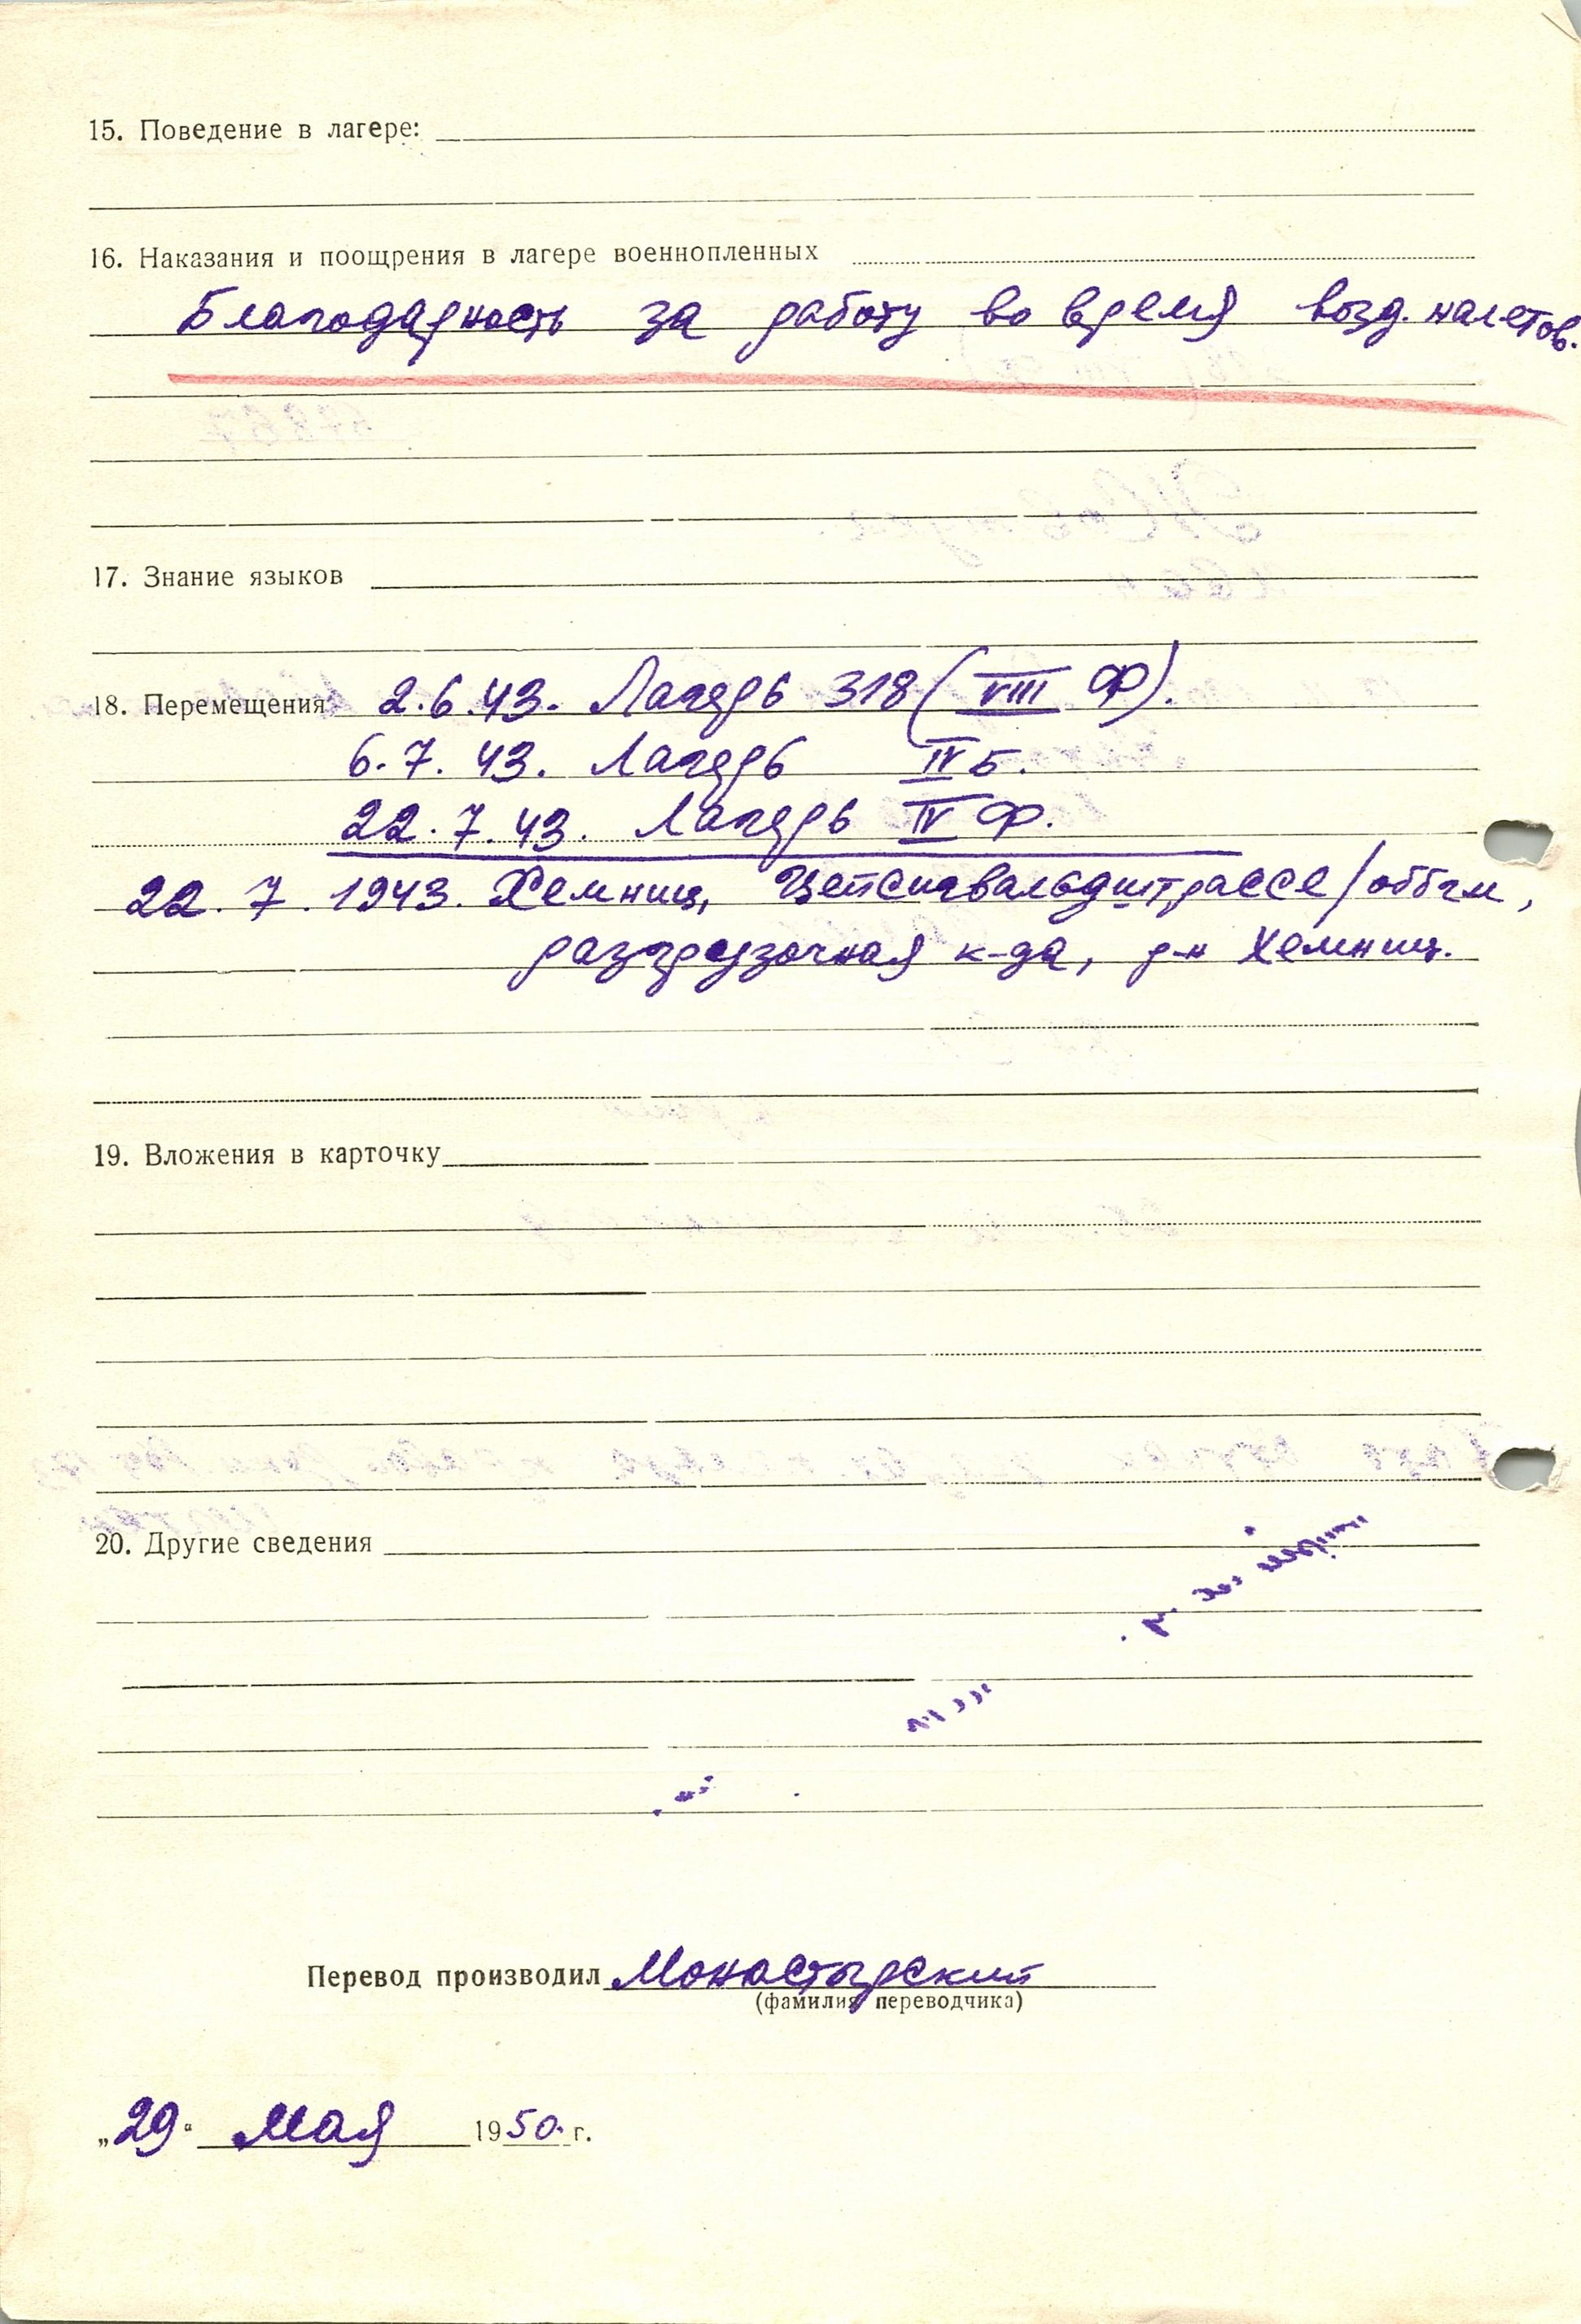 15. Поведение в лагере:
16. Наказания и поощрения в лагере военнопленных
Благодарность за работу во время возд. налетов.
17. Знание языков
18. Перемещения: 2.6.43. Лагерь 318 (VIII Ф).
6.7.43. Лагерь IV Б.
22.7.43. Лагерь IV Ф.
22.7.1943. Хемниц, Цейсигвальдштрассе/
разгрузочная к-да, р-н Хемниц.
19. Вложения в карточку
20. Другие сведения
Перевод производил Монастырский
(фамилия переводчика)
„29“ Мая 1950 г.